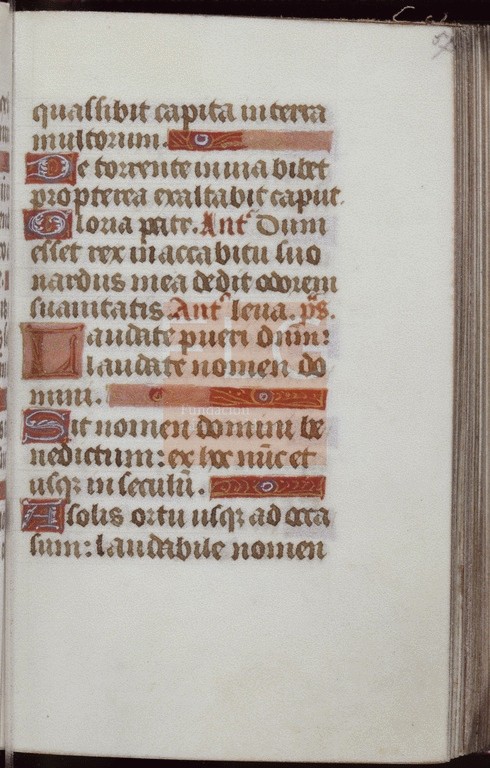 quassibit capita in terra
multorum.
De torrente in via bibet
propterea exaltabit caput.
Gloria patr. Ant͛ Dum
esset rex in accubitu suo
nardus mea dedit odorem
suauitatis. Ant͛ leua. p̄s.
Laudate pueri dnm̄:
laudate nomen do
mini.
Sit nomen domini be
nedictum: ex hoc nūc et
usq; in seculū.
A solis ortu usq; ad occa
sum: laudabile nomen
Fundación